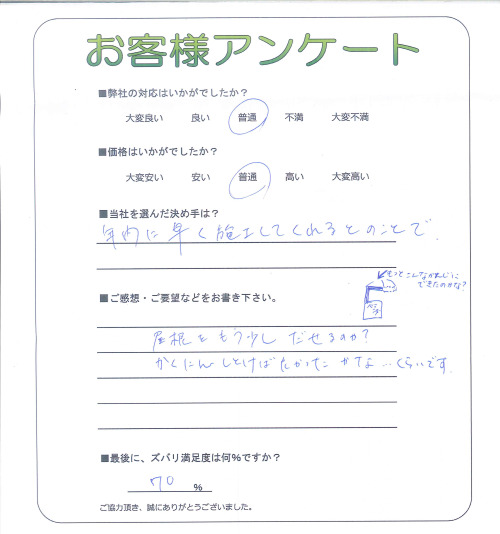 お客様アンケート
■弊社の対応はいかがでしたか?
大変良い 良い 普通 不満 大変不満
■価格はいかがでしたか?
大変安い 安い 普通 高い 大変高い
■当社を選んだ決め手は?
年内に早く施工してくれるとのことで
■ご感想・ご要望などをお書き下さい。
もっとこんなかんじに
できたのかな?
屋根をもう少しだせるのか?
かくにんしとけばよかったかなぁ…くらいです
■最後に、ズバリ満足度は何%ですか?
70 %
ご協力頂き、誠にありがとうございました。